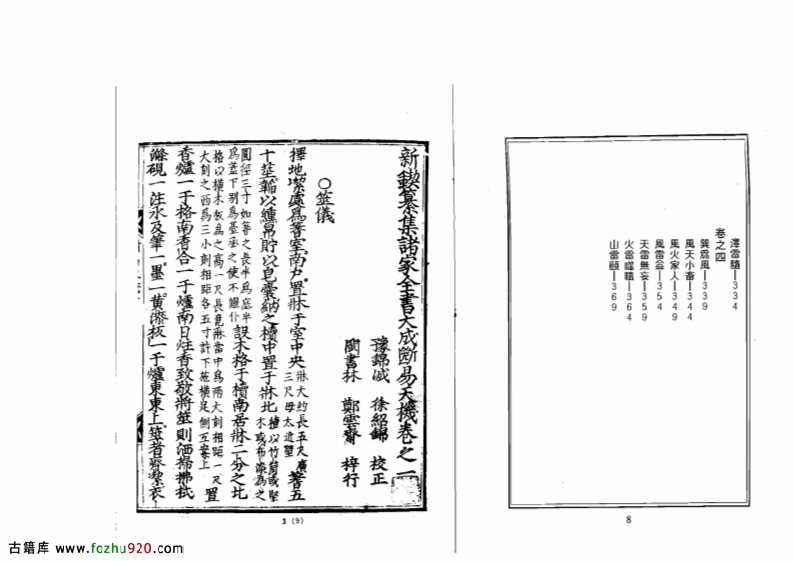 澤雷隨—334
卷之四
巽爲風—339
風天小畜—344
風火家人—349
風雷益—354
天雷無妄—359
火雷噬嗑—364
山雷頤—369
8
新鍥纂集諸家全書大成斷易天機卷之一
豫錦誠 徐紹錦 校正
閩書林 鄭雲齋 梓行
○筮儀
擇地潔處爲蓍室南戶置牀于室中央 牀大約長五尺廣三尺毋太近壁 蓍五
十莖韜以纁帛貯以皂囊納之櫝中置于牀北 櫝以竹筒或堅木或布漆為之
圓徑三寸如蓍之長半爲底半爲蓋下別爲臺函之使不偃仆 設木格于櫝南居牀二分之北
格以橫木板爲之高一尺長竟牀當中爲兩大刻相距一尺大刻之西爲三小刻相距各五寸許下施橫足側立案上 置
香爐一于格南香合一于爐南日炷香致敬將筮則洒掃拂拭
滌硯一注水及筆一墨一黃漆板一于爐東東上筮者齊潔衣
3 (9)
古籍库 www.fozhu920.com